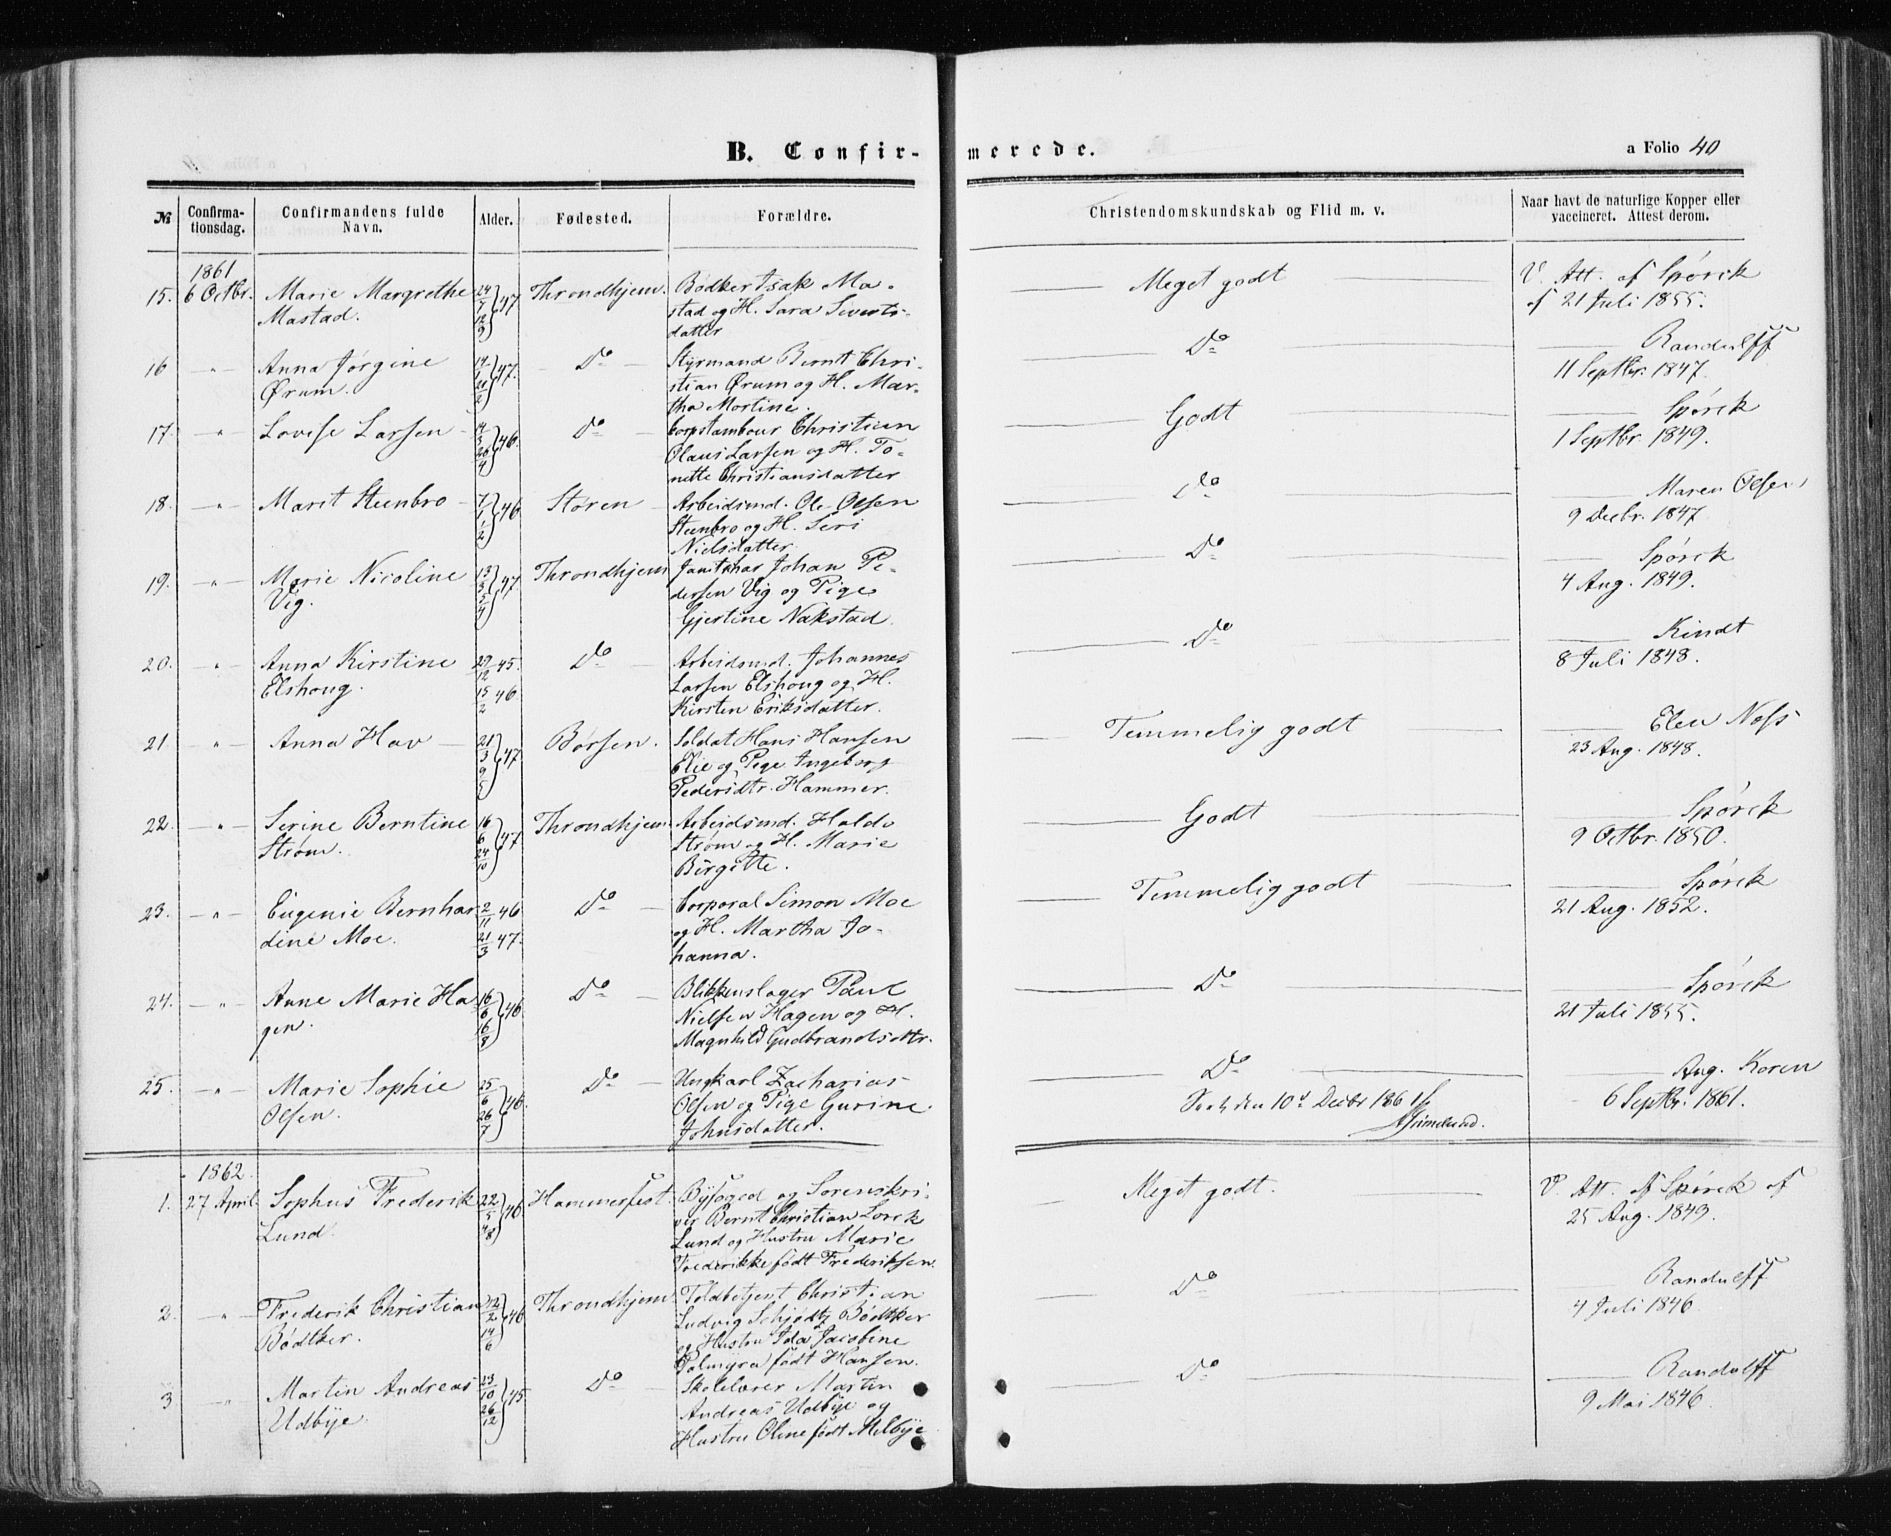 B. Confir-merede.
a Folio 40
№
Confirma-
tionsdag.
Confirmandens fulde
Navn.
Alder.
Fødested.
Forældre.
Christendomskundskab og Flid m. v.
Naar havt de naturlige Kopper eller
vaccineret. Attest derom.
1861
15. 6 Octbr. Marie Margrethe 24/7 12/9 } 47 Throndhjem. Bødker Isak Ma- Meget godt V. Att. af Spørck
Mastad. stad og H. Sara Siverts- af 21 Juli 1855.
datter
16 -"- Anna Jørgine 14/1 21/2 } 47. Do Styrmand Bernt Chri- Do Randulff
Ørum. stian Ørum og H. Mar- 11 Septbr. 1847.
tha Mortine.
17. " Lovise Larsen 14/3 26/4 } 46. Do Corpstambour Christian Godt Spørck
Olaus Larsen og H. To- 1 Septbr. 1849.
nette Christiansdatter
18. -"- Marit Steenbro 7/1 1/2 } 46 Støren Arbeidsmd. Ole Olsen Do Maren Olsen
Steenbro og H. Seri 9 Decbr. 1847
Nielsdatter
19. -"- Marie Nicoline 13/3 5/4 } 47. Throndhjem Janitshar Johan Pe- Do Spørck
Vig. dersen Vig og Pige 4 Aug. 1849.
Gjertine Nakstad.
20. -"- Anna Kirstine 29/12 45. Do Arbeidsmd. Johannes Do Kindt
Elshoug. 15/2 46 Larsen Elshoug og H. 8 Juli 1848.
Kirsten Eriksdatter.
21 -"- Anna Hov 21/3 9/5 } 47 Børsen. Soldat Hans Hansen Temmelig godt Elen Næss
Elie og Pige Ingeborg 23 Aug. 1848.
Pedersdtr. Hammer.
22. -"- Serine Berntine 16/6 24/10 } 47 Throndhjem. Arbeidsmd. Haldo Godt Spørck
Strøm. Strøm og H. Marie 9 Octbr. 1850.
Birgitte.
23. -"- Eugenie Bernhar 2/11 46 Do Corporal Simon Moe Temmelig godt Spørck
dine Moe. 21/3 47. og H. Martha Jo- 21 Aug. 1852.
hanna.
24. -"- Anne Marie Ha 16/6 16/8 } 46 Do Blikkenslager Paul Do Spørck
gen. Nielsen Hagen og H. 21 Juli 1855.
Magnhild Gudbrandsdtr.
25. -"- Marie Sophie 25/6 26/7 } 46 Do Ungkarl Zacharias Do Aug. Koren
Olsen. Olsen og Pige Gurine 6 Septbr. 1861.
Johnsdatter. den 10d Decbr 1861
1862.
1. 27 April Sophus Frederik 22/5 4/8 } 46 Hammerfest. Byfoged og Sorenskri- Meget godt. V. Att. af Spørck af
Lund. ver Bernt Christian Lorck 25 Aug. 1849.
Lund og Hustru Marie
Frederikke født Frederiksen.
2. -"- Frederik Christian 12/2 14/6 } 46 Throndhjem Toldbetjent Christian Do Randulff
Bødtker. Ludvig Schjødtz Bødtker 4 Juli 1846
og Hustru Ida Jacobine
Palmyra født Hansen.
3 -"- Martin Andreas 23/10 26/12 } 45 Do Skolelærer Martin Do Randulff
Udbye. Andreas Udbye og 9 Mai 1846.
Hustru Oline født Melbye